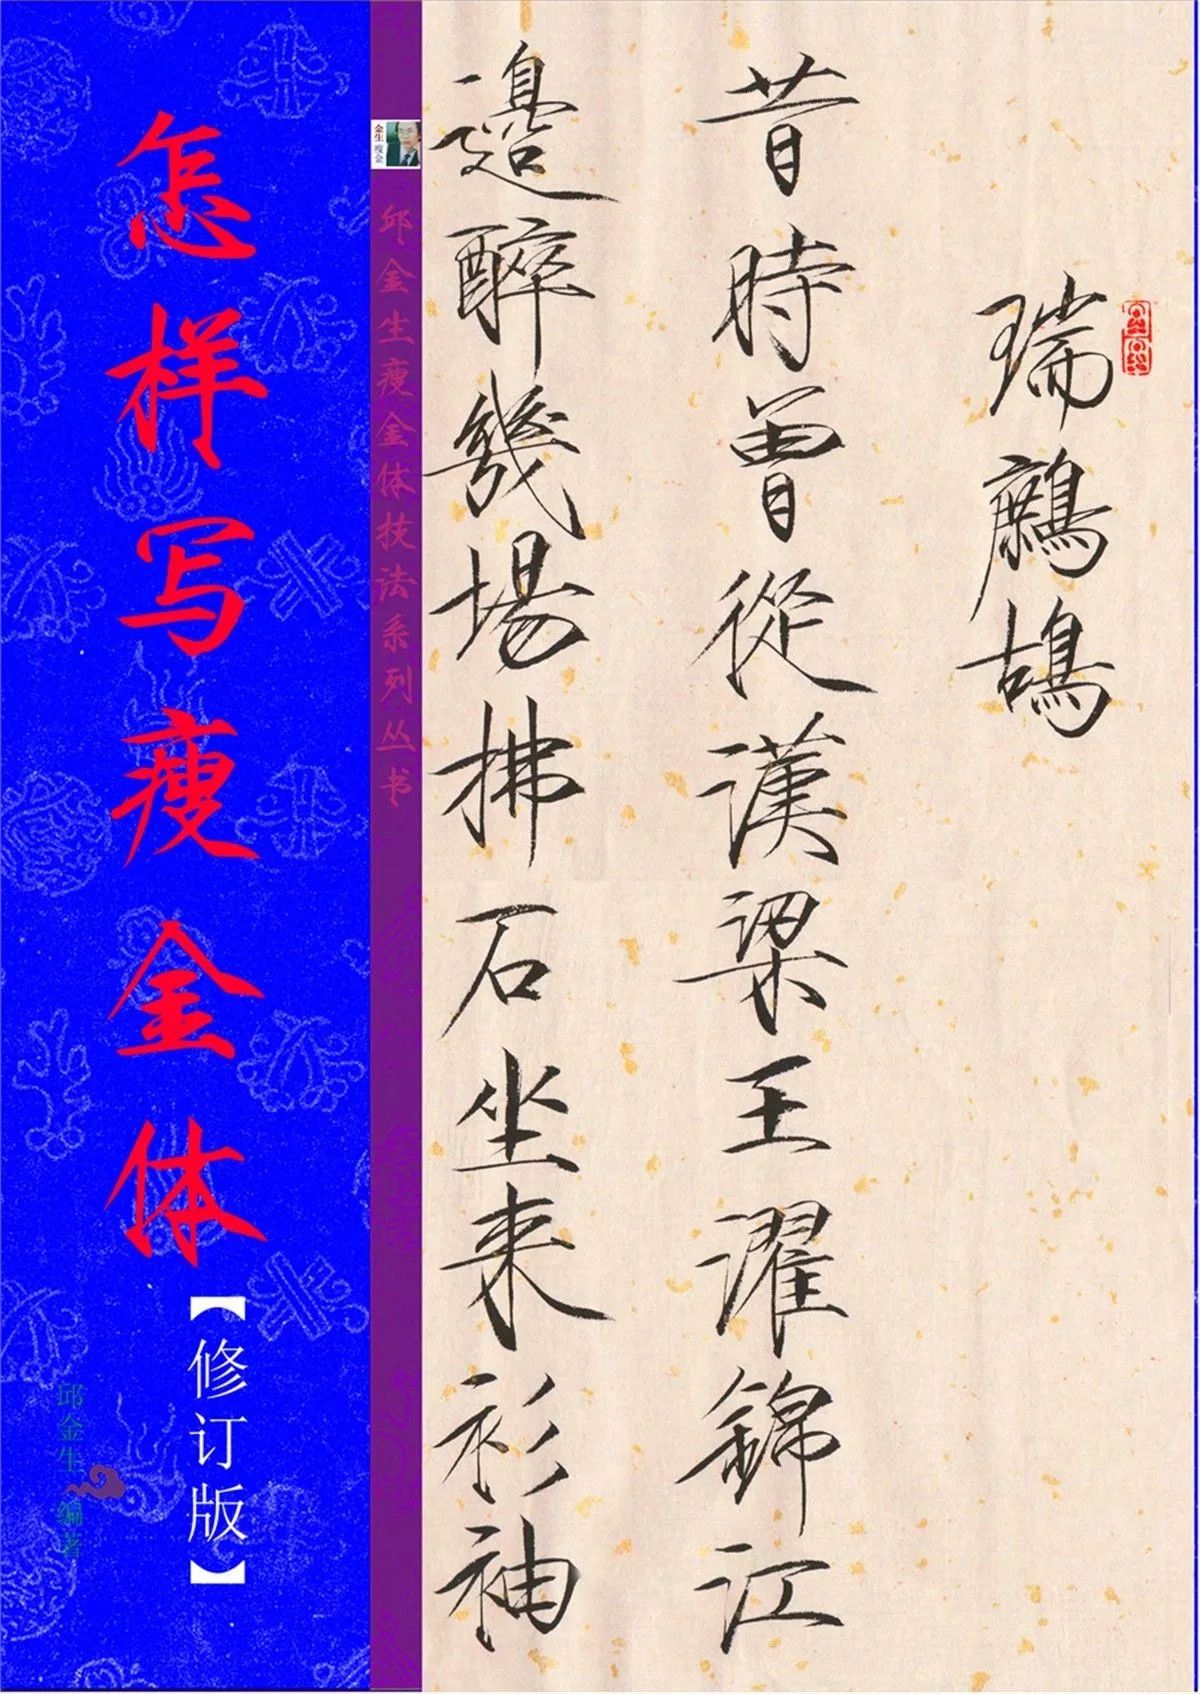 怎样写瘦金体
【修订版】
邱金生 编著
金生
瘦金
邱金生瘦金体技法系列丛书
瑞鷓鴣
昔時曾從漢梁王濯錦江
邊醉幾場拂石坐来衫袖